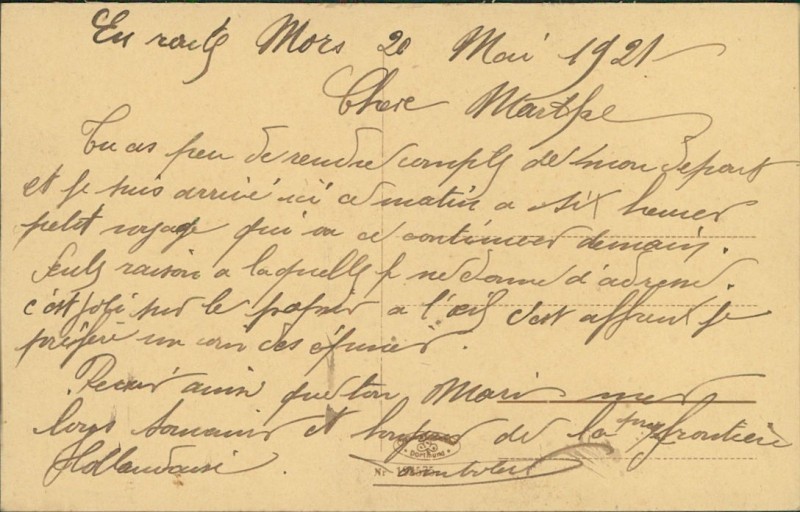 En route Mors 20 Mai 1921
Chere Marthe
Tu as peu de rendre compte de mon depart
et je suis arrivé ici ce matin a six heures
petit voyage qui va ce continuer demain.
Seule raison a laquelle je ne donne d'adresse.
c'est joli sur le papier a l'œil c'est affreux je
préfère un coin des
Recois ainsi que ton Mari mes
bons souvenirs et de la frontière
Hollandaise.
Dortmund
Nr